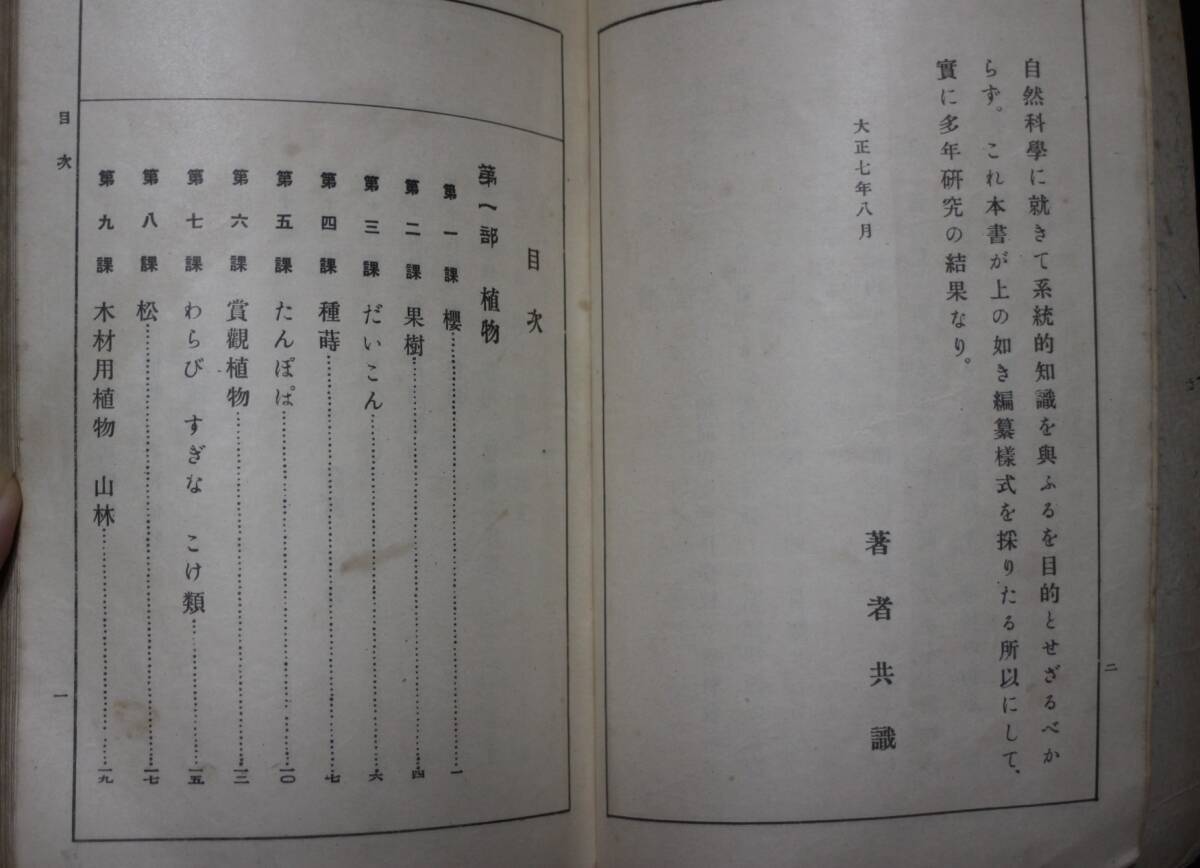 自然科學に就きて系統的知識を與ふるを目的とせざるべか
らず。これ本書が上の如き編纂樣式を採りたる所以にして、
實に多年研究の結果なり。
大正七年八月
著者共識
二
目次
第一部 植物
第一課 櫻……一
第二課 果樹……四
第三課 だいこん……六
第四課 種蒔……七
第五課 たんぽぽ……一〇
第六課 賞觀植物……一三
第七課 わらび すぎな こけ類……一五
第八課 松……一七
第九課 木材用植物 山林……一九
目次
一